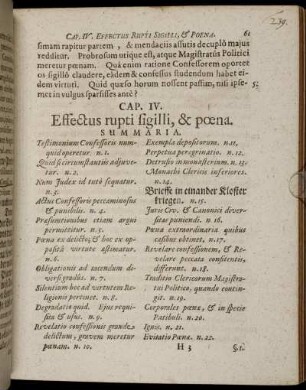 CAP. IV. EFFECTUS RUPTI SIGILLI, & POENA. 61
simam rapitur partem, & mendaciis assutis decuplò majus
redditur. Probrosum utique est, atque Magistratûs Politici
meretur poenam. Quâ enim ratione Confessorem oportet
os sigillò claudere, eâdem & confessus studendum habet ei-
dem virtuti. Quid quæso horum nossent passim, nisi ipse-
met in vulgus sparsisses antè?
CAP. IV.
Effectus rupti sigilli, & poena.
SUMMARIA.
Testimonium Confessoris num-
quid operetur. n. 1.
Quid si circumstantiis adjuve-
tur. n. 2.
Num Judex id tutò sequatur.
n. 3.
Actus Confessoris peccaminosus
& punibilis. n. 4.
Præsumtionibus etiam argui
permittitur. n. 5.
Poena ex delicto, & hoc ex op-
positâ virtute æstimatur.
n. 6.
Obligationis ad tacendum di-
versi gradûs. n. 7.
Silentium hoc ad virtutem Re-
ligionis pertinet. n. 8.
Degradatio quid. Ejus requi-
sita & usus. n. 9.
Revelatio confessionis grande
delictum, gravem meretur
poenam. n. 10.
Exempla depositorum. n. 11.
Perpetua peregrinatio. n. 12.
Detrusio in monasterium. n. 13.
Monachi Clericis inferiores.
n. 14.
Brieffe in einander Klöster
kriegen. n. 15.
Juris Civ. & Canonici diver-
sitas puniendi. n. 16.
Poena extraordinaria quibus
casibus obtinet. n. 17.
Revelare confessionem, & Re-
velare peccata confitentis,
differunt. n. 18.
Traditio Clericorum Magistra-
tui Politico, quando contin-
git. n. 19.
Corporales poenæ, & in specie
Patibuli. n. 20.
Ignis. n. 21.
Evitatio Poenæ. n. 22.
H 3 §. 1.